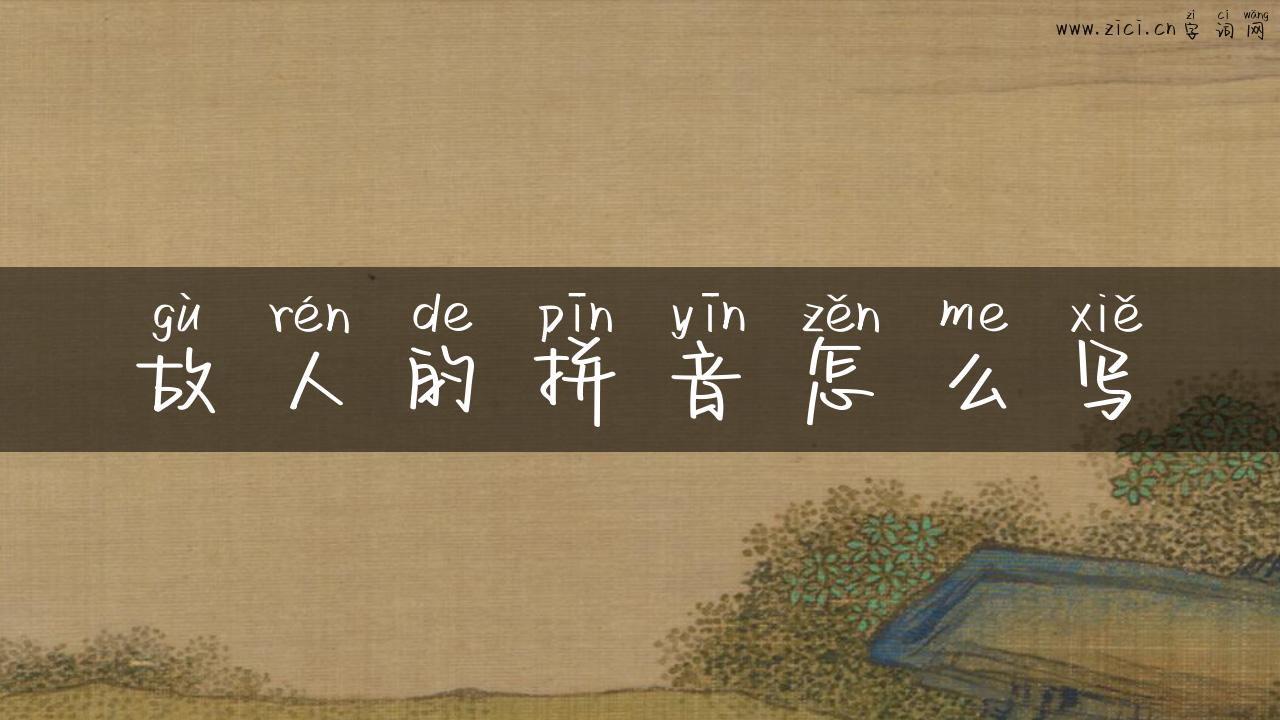 zì cí wǎng
www.zici.cn字词网
gù rén de pīn yīn zěn me xiě
故人的拼音怎么写